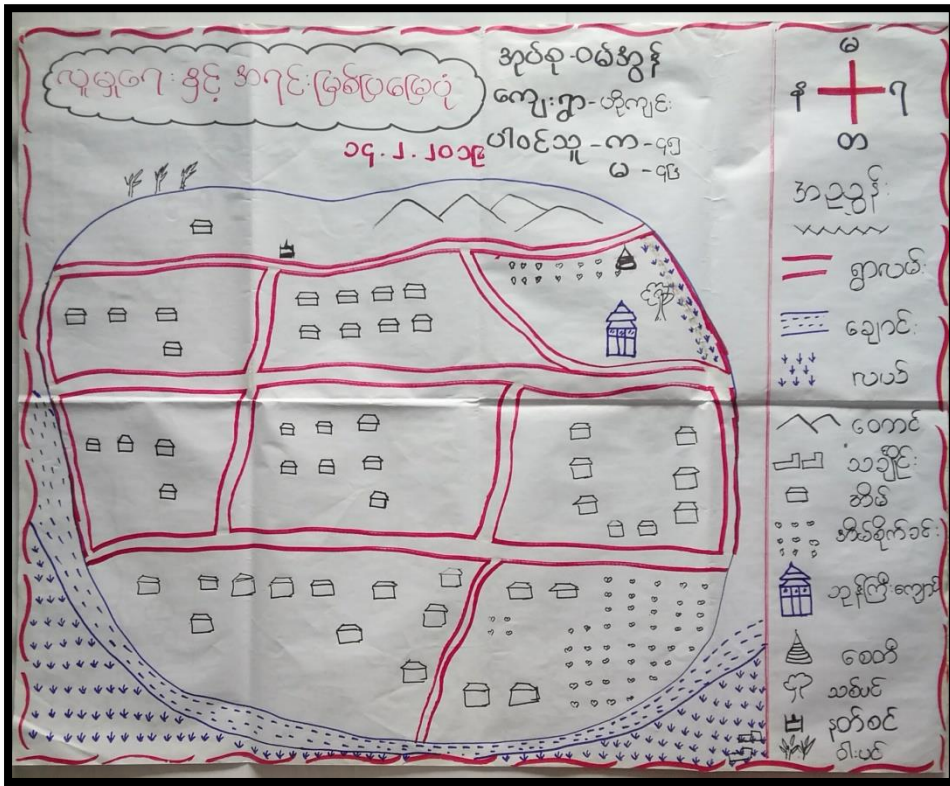 လူမှုရေး နှင့် အရင်းမြစ်ပြမြေပုံ
အုပ်စု-ဝမ်အွန်
ကျေးရွာ-ဟိုကျင်း
ပါဝင်သူ-က-၄၅
မ-၄၆
၁၄.၂.၂၀၁၉
မ
န ရ
တ
အညွှန်း
ရွာလမ်း
ချောင်း
လယ်
တောင်
သင်္ချိုင်း
အိမ်
အိမ်စိုက်ခင်း
ဘုန်းကြီးကျောင်း
စေတီ
သစ်ပင်
နတ်စင်
ဝါးပင်